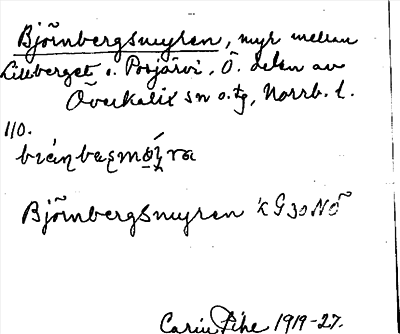 Björnbergsmyren, myr mellan
Lillberget o. Porjärvi, Ö. delen av
Överkalix sn o. tg, Norrb. l.
110.
Björnbergsmyren K G 30 NÖ
Carin Pihe 1919-27.